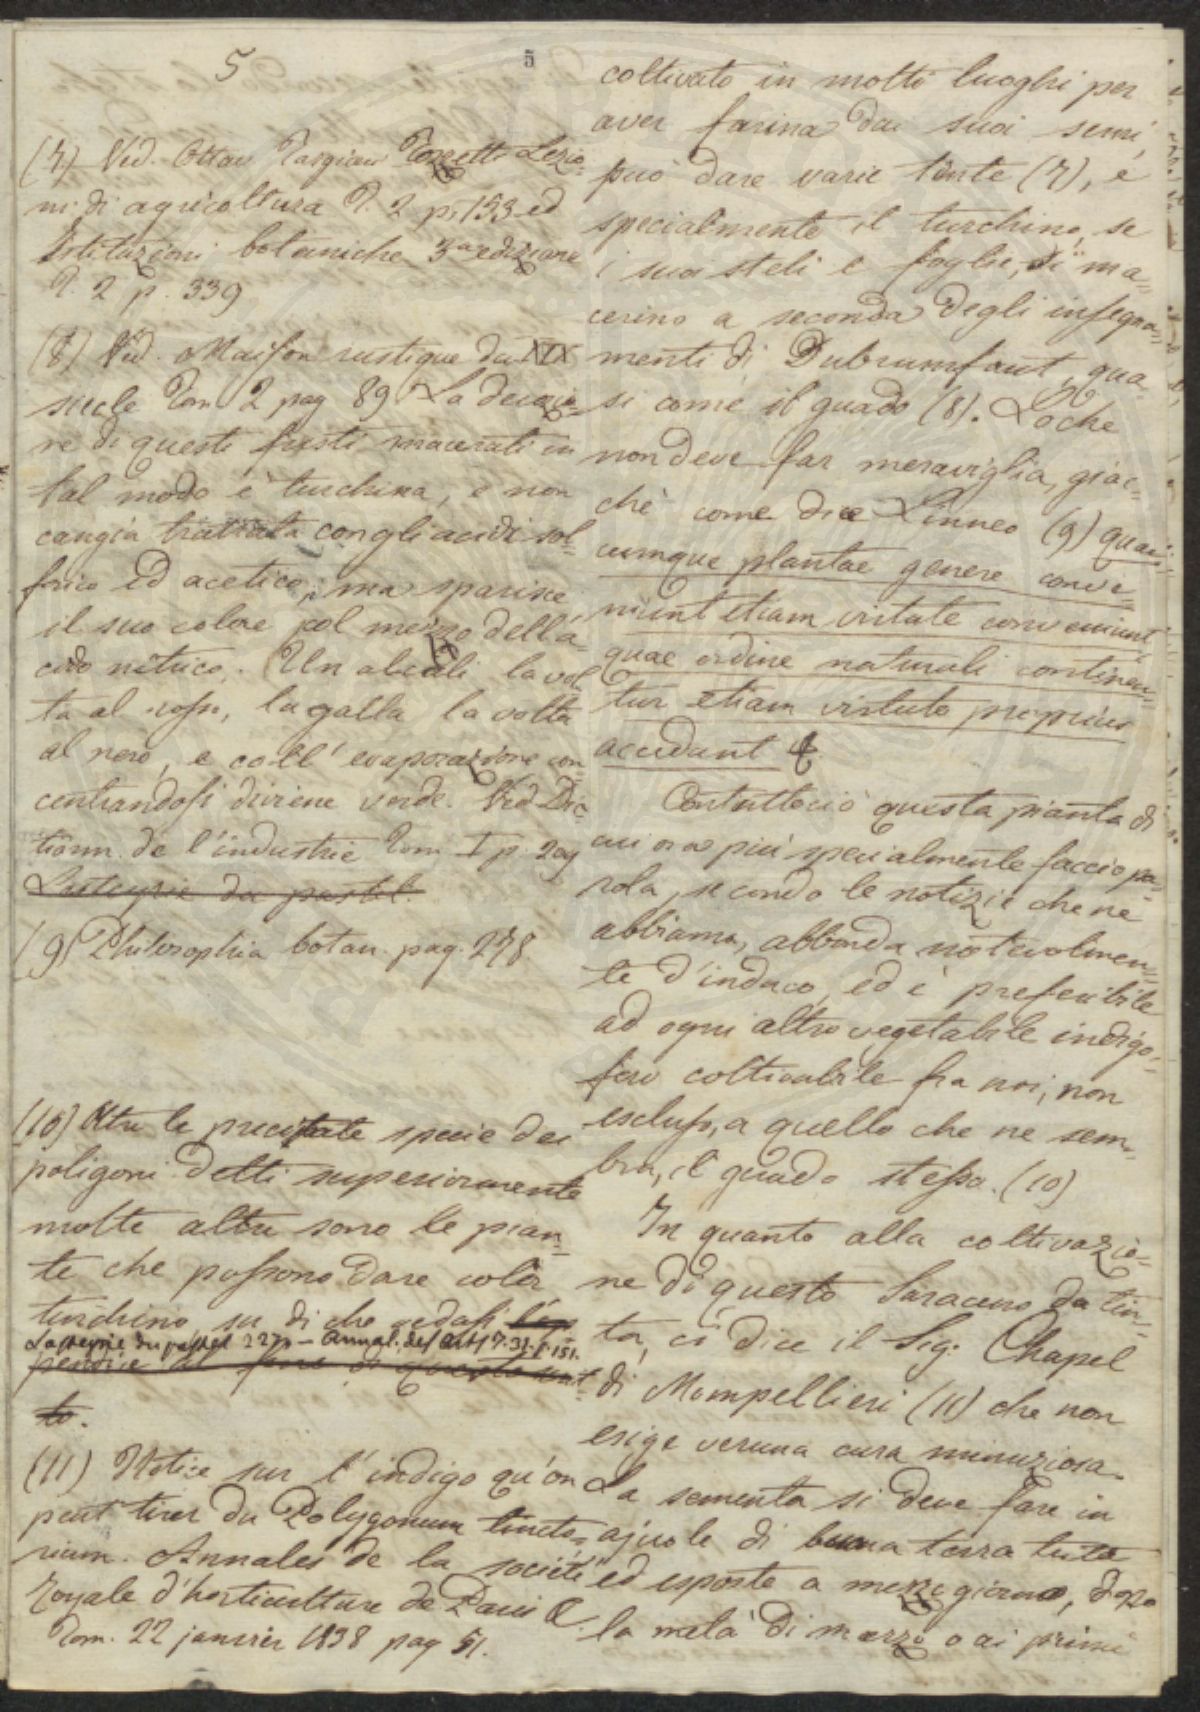 5
5
(7.) Ved. Ottav Targioni Tozzetti Lezio=
ni di agricoltura T. 2 p. 153 ed
Istituzioni botaniche 3a edizione
T. 2 p. 339
(8) Ved. Maison rustique du XIX
siecle Tom 2 pag 89 La decozio=
ne di questi fusti macerati in
tal modo è turchina, e non
cangia trattata con gli acidi sol=
forico ed acetico; ma sparisce
il suo colore pel mezzo dell'a=
cido nitrico. Un alcali la vol
ta al rosso, la galla la volta
al nero, e coll' evaporazione con
centrandosi diviene verde. Ved. Dic=
tionn. de l'industrie Tom I p. 209
Lasteyrie du pastel.
(9) Philosophia botan. pag. 278
(10) Oltre le precitate specie dei
poligoni detti superiormente
molte altre sono le pian=
te che possono dare color
turchino su di che vedasi
Lasteyrie du pastel 227 - Annal. des Arts T. 31. p. 151.
fine di questo
to.
(11) Notice sur l'indigo qu'on
peut tirer du Polygonum tincto=
rium. Annales de la societé
royale d'horticulture de Paris &.
Tom. 22 janvier 1838 pag 51.
coltivato in molti luoghi per
aver farina dai suoi semi,
può dare varie tinte (7), e
specialmente il turchino, se
i suoi steli e foglie, si ma=
cerino a seconda degli insegna=
menti di Dubrumfaut, qua
si come il guado (8). Loche
non deve far meraviglia, giac=
chè come dice Linneo (9) quae=
cumque plantae genere conve=
niunt etiam virtute conveniunt,
quae ordine naturali continen=
tur etiam virtute propius
accedant &
Contuttociò questa pianta di
cui ora più specialmente faccio pa=
rola, secondo le notizie che ne
abbiamo, abbonda notevolmen=
te d'indaco, ed è preferibile
ad ogni altro vegetabile indigo=
fero coltivabile fra noi, non
escluso, a quello che ne sem=
bra, il guado stesso. (10)
In quanto alla coltivazio=
ne di questo Saraceno da tin=
ta, ci dice il Sig: Chapel
di Mompellieri (11) che non
esige veruna cura minuziosa.
La sementa si deve fare in
ajuole di buona terra
ed esposte a mezzogiorno, dopo
la metà di marzo o ai primi